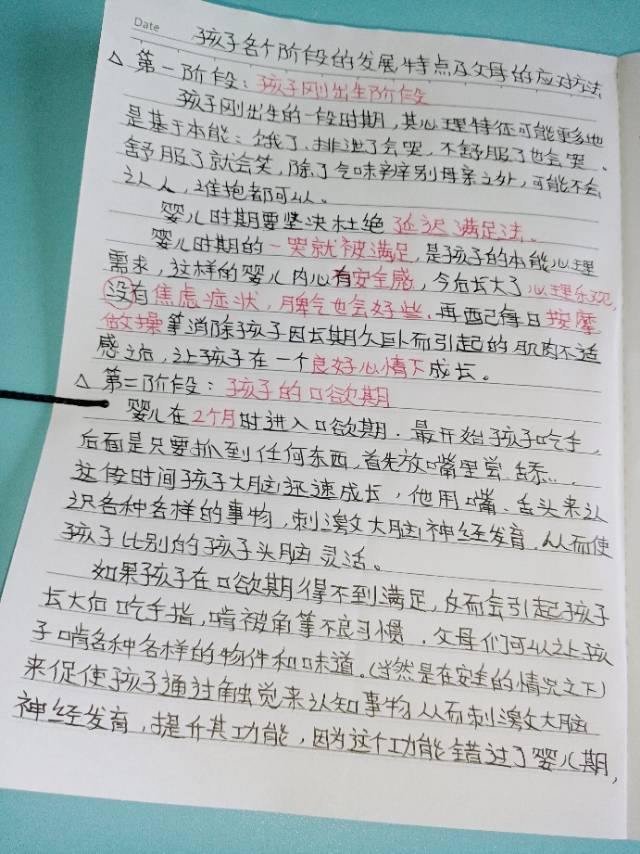 Date
孩子各个阶段的发展特点及父母的应对方法
△ 第一阶段：孩子刚出生阶段
孩子刚出生的一段时期，其心理特征可能更多地
是基于本能：饿了、排泄了会哭，不舒服了也会哭。
舒服了就会笑，除了气味辨别母亲之外，可能不会
认人，谁抱都可以。
婴儿时期要坚决杜绝延迟满足法。
婴儿时期的一哭就被满足，是孩子的本能心理
需求，这样的婴儿内心有安全感，今后长大了心理乐观，
没有焦虑症状，脾气也会好些，再配每日按摩
做操等消除孩子因长期久卧而引起的肌肉不适
感之后，让孩子在一个良好心情下成长。
△ 第二阶段：孩子的口欲期
婴儿在2个月时进入口欲期．最开始孩子吃手，
后面是只要抓到任何东西，首先放嘴里尝、舔…．
这段时间孩子大脑迅速成长，他用嘴、舌头来认
识各种各样的事物，刺激大脑神经发育，从而使
孩子比别的孩子头脑灵活。
如果孩子在口欲期得不到满足，反而会引起孩子
长大后吃手指，啃被角等不良习惯．父母们可以让孩
子啃各种各样的物件和味道。(当然是在安全的情况之下)
来促使孩子通过触觉来认知事物从而刺激大脑
神经发育，提升其功能，因为这个功能错过了婴儿期，